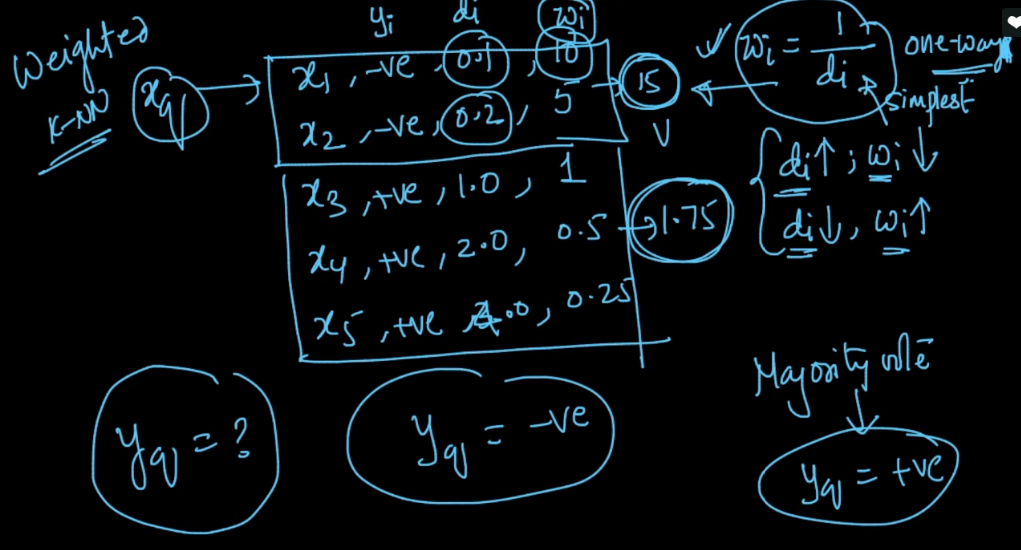 Weighted
K-NN
xq
yi di wi
x1, -ve, 0.1, 10
x2, -ve, 0.2, 5
15
x3, +ve, 1.0, 1
x4, +ve, 2.0, 0.5
1.75
x5, +ve, 4.0, 0.25
wi = 1/di
one-way
simplest
di↑; wi↓
di↓, wi↑
yq = ?
yq = -ve
Majority vote
yq = +ve